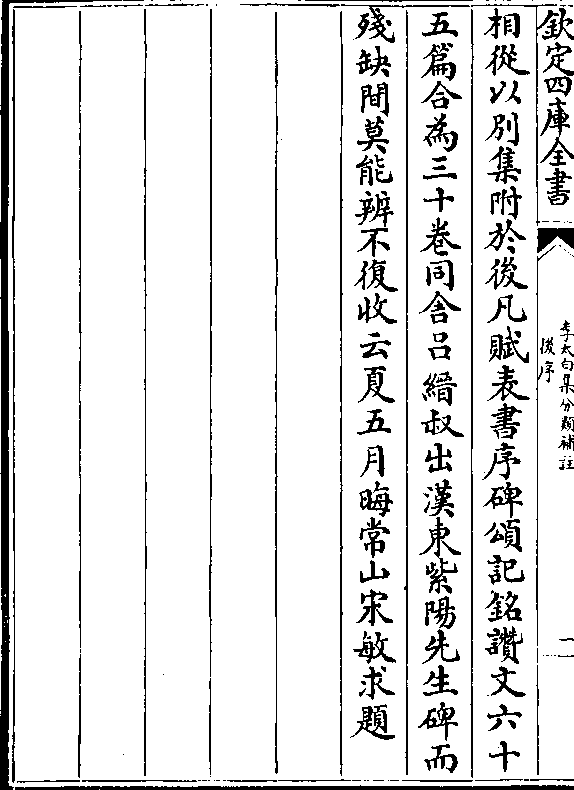 欽定四庫全書
李太白集分類補註
後序
二
相從以別集附於後凡賦表書序碑頌記銘讚文六十
五篇合為三十卷同舎呂縉叔出漢東紫陽先生碑而
殘缺間莫能辨不復收云夏五月晦常山宋敏求題